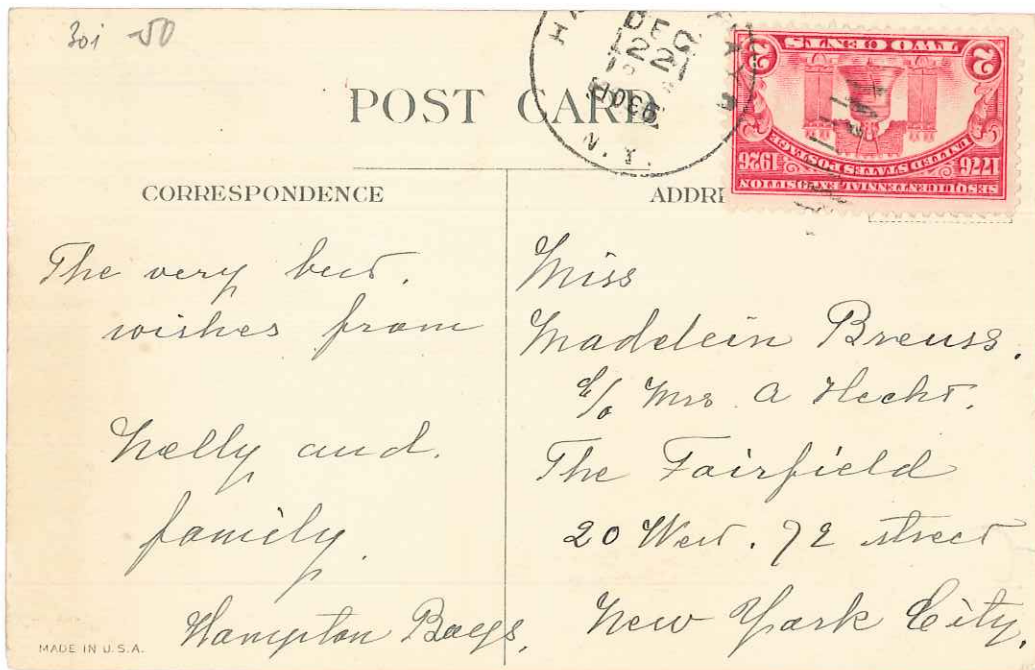 30i 50
DEC
22
930P
N.Y.
TWO CENTS
2 2
UNITED STATES POSTAGE
1776 1926
SESQUICENTENNIAL EXPOSITION
POST CARD
CORRESPONDENCE
The very best.
wishes from
Nelly and.
family.
Hampton Bays,
MADE IN U.S.A.
Miss
Madelein Breuss.
c/o Mrs. A Hecht.
The Fairfield
20 West. 72 street
New York City.